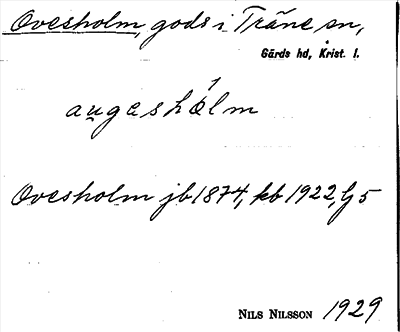 Ovesholm, gods i Träne sn,
Gärds hd, Krist. l.
au̯geshólm
Ovesholm jb 1874, kb 1922, Lj 5
NILS NILSSON 1929